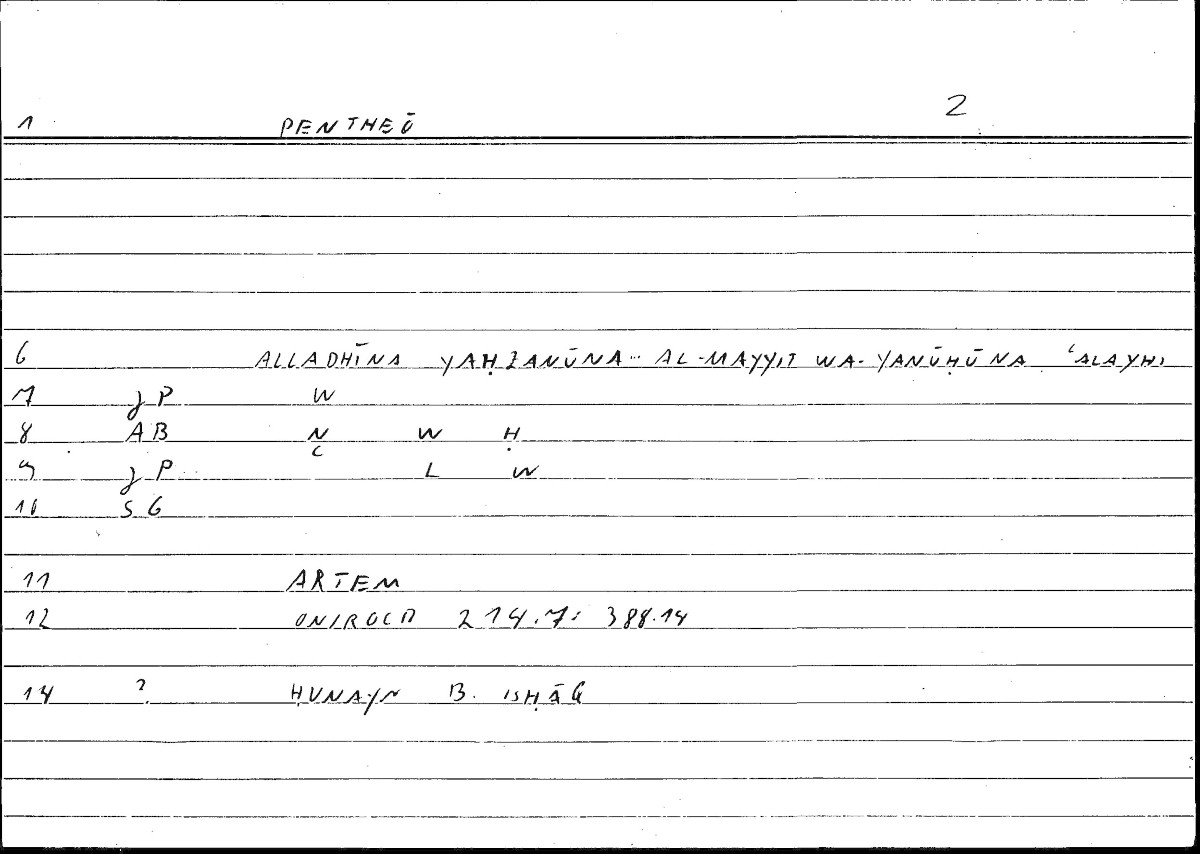 1 PENTHEŌ 2
6 ALLADHĪNA YAḤZANŪNA... AL-MAYYIT WA-YANŪḤŪNA ʿALAYHI
7 JP W
8 AB N W Ḥ
C
9 JP L W
10 SG
11 ARTEM
12 ONIROCR 214.7; 388.14
14 ? ḤUNAYN B. ISḤĀQ